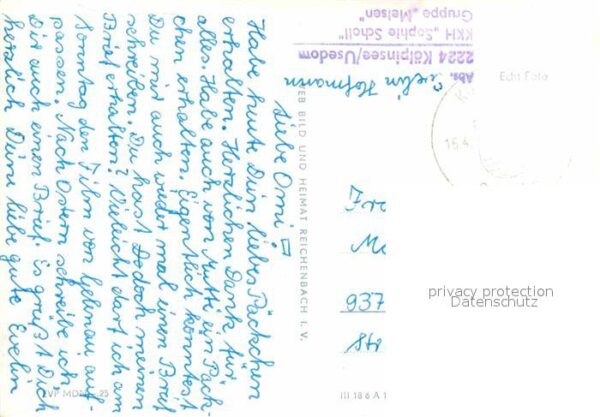 Liebe Omi!
Habe heute Dein liebes Päckchen
erhalten. Herzlichen Dank für
alles. Habe auch von Mutti ein Päck-
chen erhalten. Eigentlich könntest
Du mir auch wieder mal einen Brief
schreiben. Du hast Dodoch meinen
Brief erhalten? Vieleicht darf ich am
Sonntag den Film von Gelenau auf-
passen. Nach Ostern schreibe ich
Dir auch einen Brief. Es grüßt Dich
herzlich Deine liebe gute Evelin
Abs.
2224 Kölpinsee/Usedom
KKH „Sophie Scholl"
Gruppe „Meisen"
Evelin Hofmann
VEB BILD UND HEIMAT REICHENBACH I. V.
Echt Foto
15.4.
Frau
937
privacy protection
Datenschutz
III 18 6 A 1
EVP MDN 25